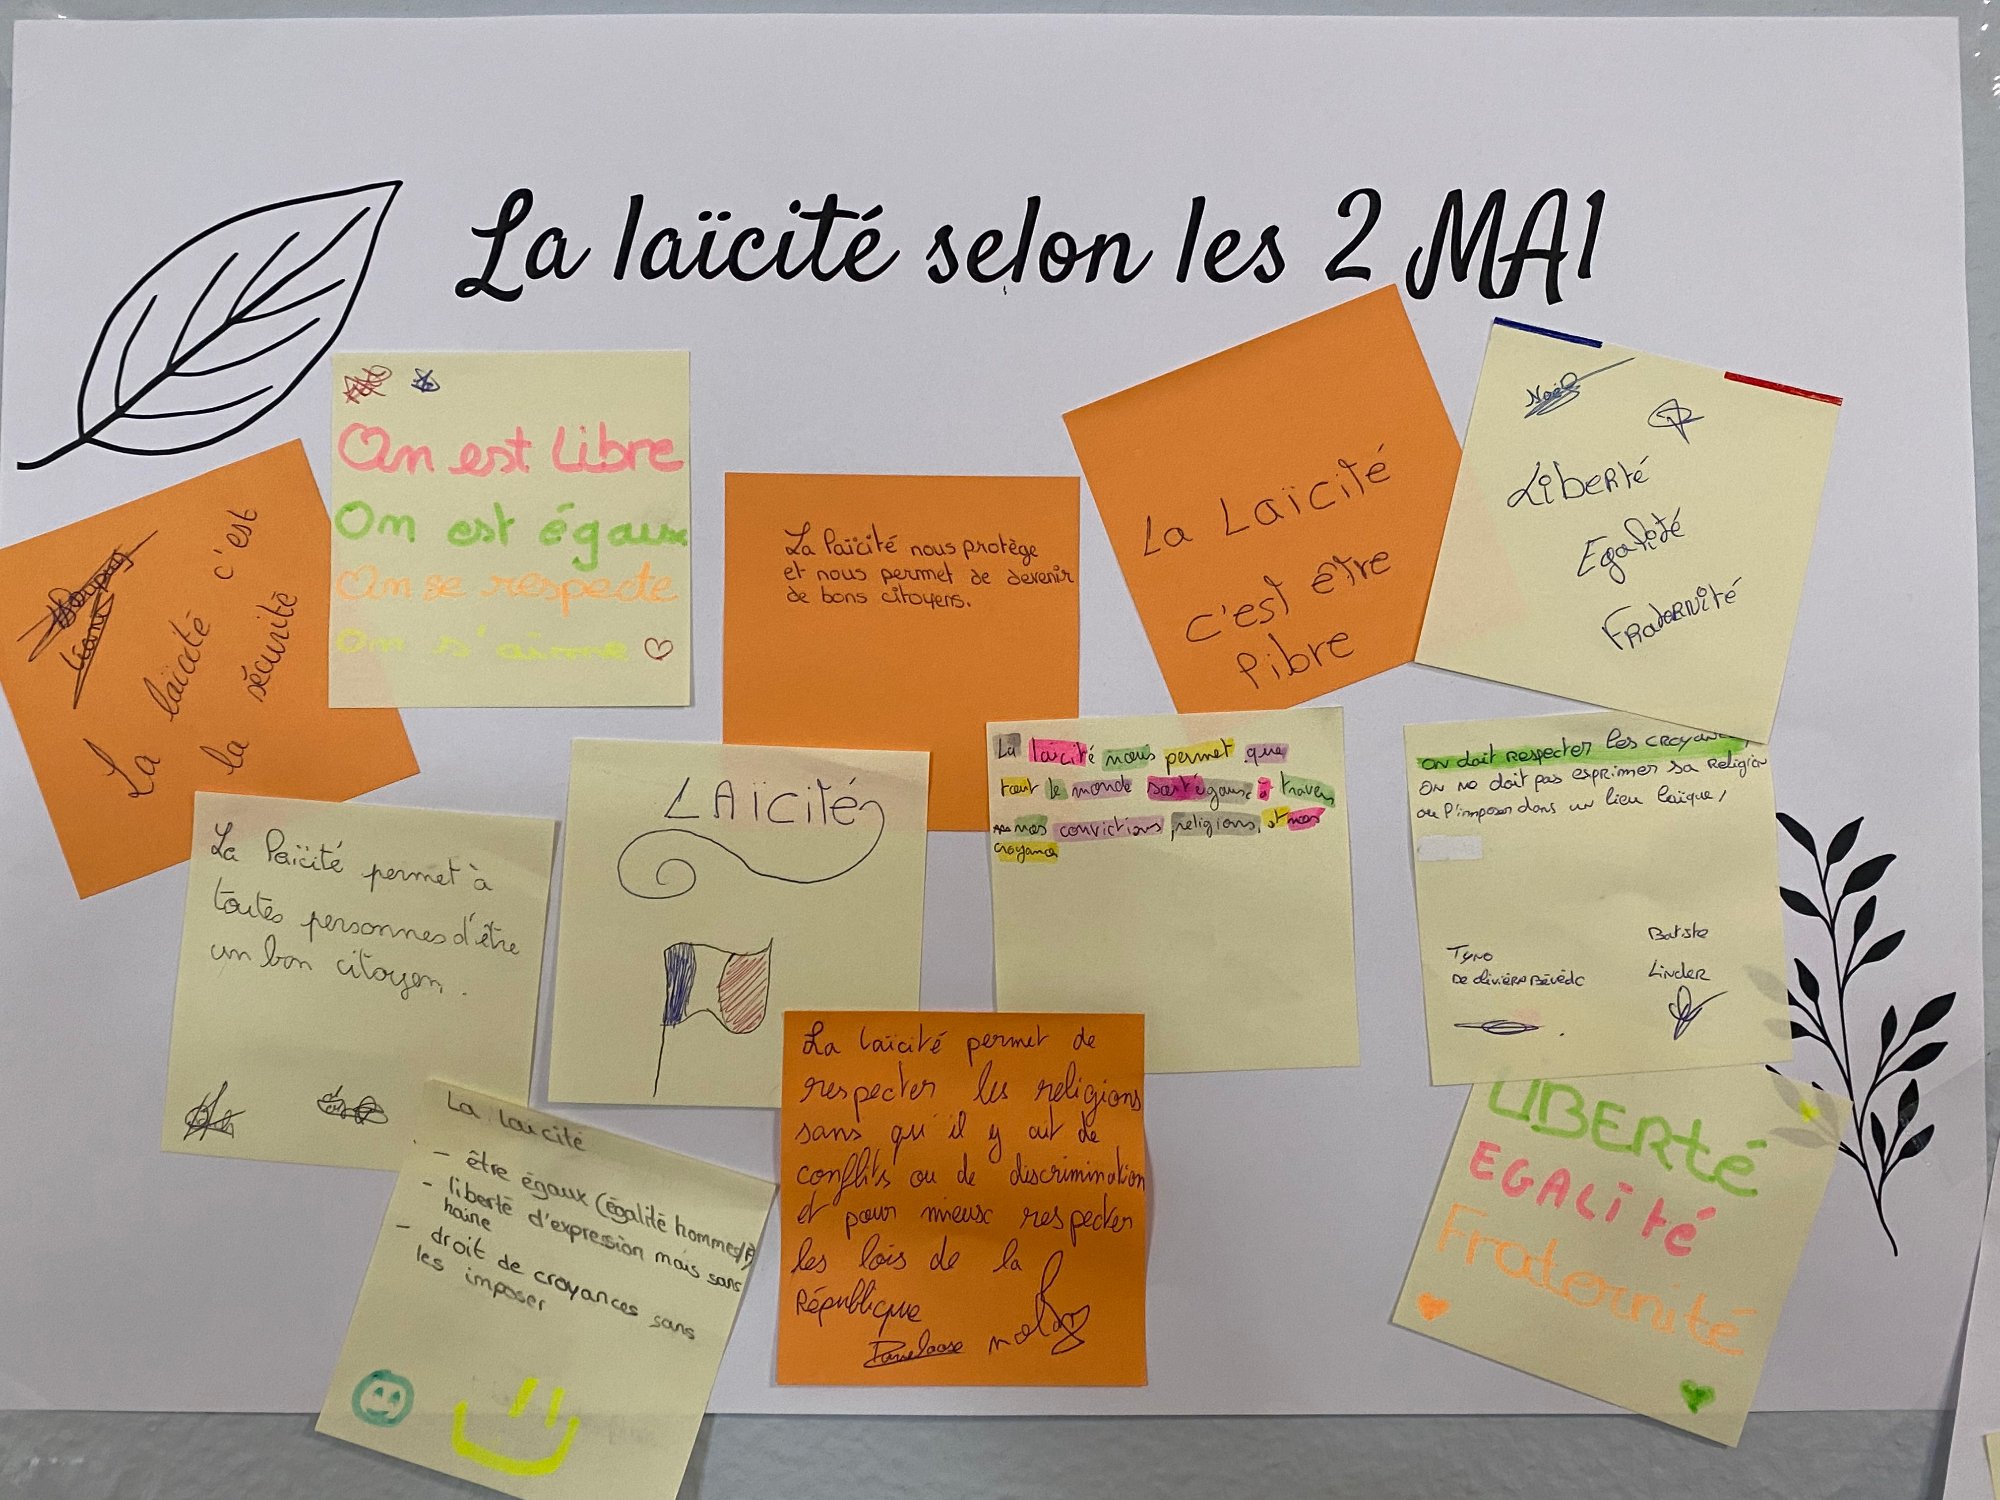 La laïcité selon les 2 MAI
La laïcité c'est
la sécurité
On est libre
On est égaux
On se respecte
On s'aime
La laïcité nous protège
et nous permet de devenir
de bons citoyens.
La Laïcité
c'est être
libre
Liberté
Egalité
Fraternité
La laïcité permet à
toutes personnes d'être
un bon citoyen.
LAïcité
La laïcité nous permet que
tout le monde soit égaux à travers
nos convictions, religions, et nos
croyance
On doit respecter les croyances
On no doit pas esprimer sa religion
ou l'imposer dans un lieu laïque,
Tyno
Batiste
Linder
La laïcité
- être égaux (égalité hommes/F)
- liberté d'expression mais sans
haine
- droit de croyances sans
les imposer
La laïcité permet de
respecter les religions
sans qu'il y ait de
conflits ou de discrimination
et pour mieux respecter
les lois de la
République
LIBERté
EGALité
Fraternité